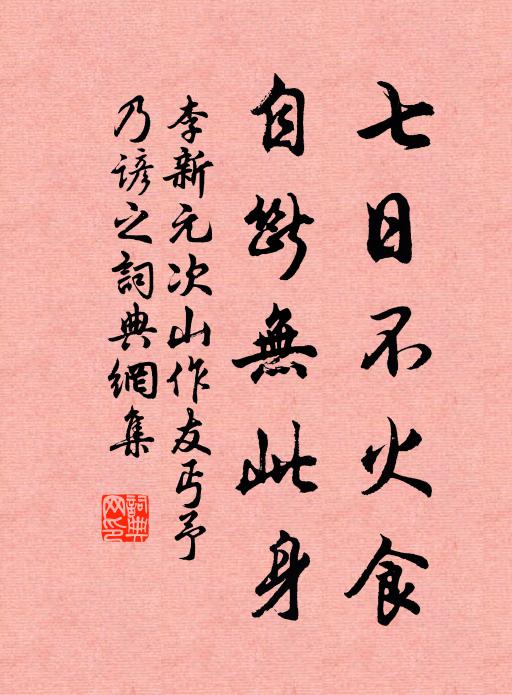 七日不火食
自斷無此身
李新元次山作友丐予
乃諺之詞典網集
詞典
网印